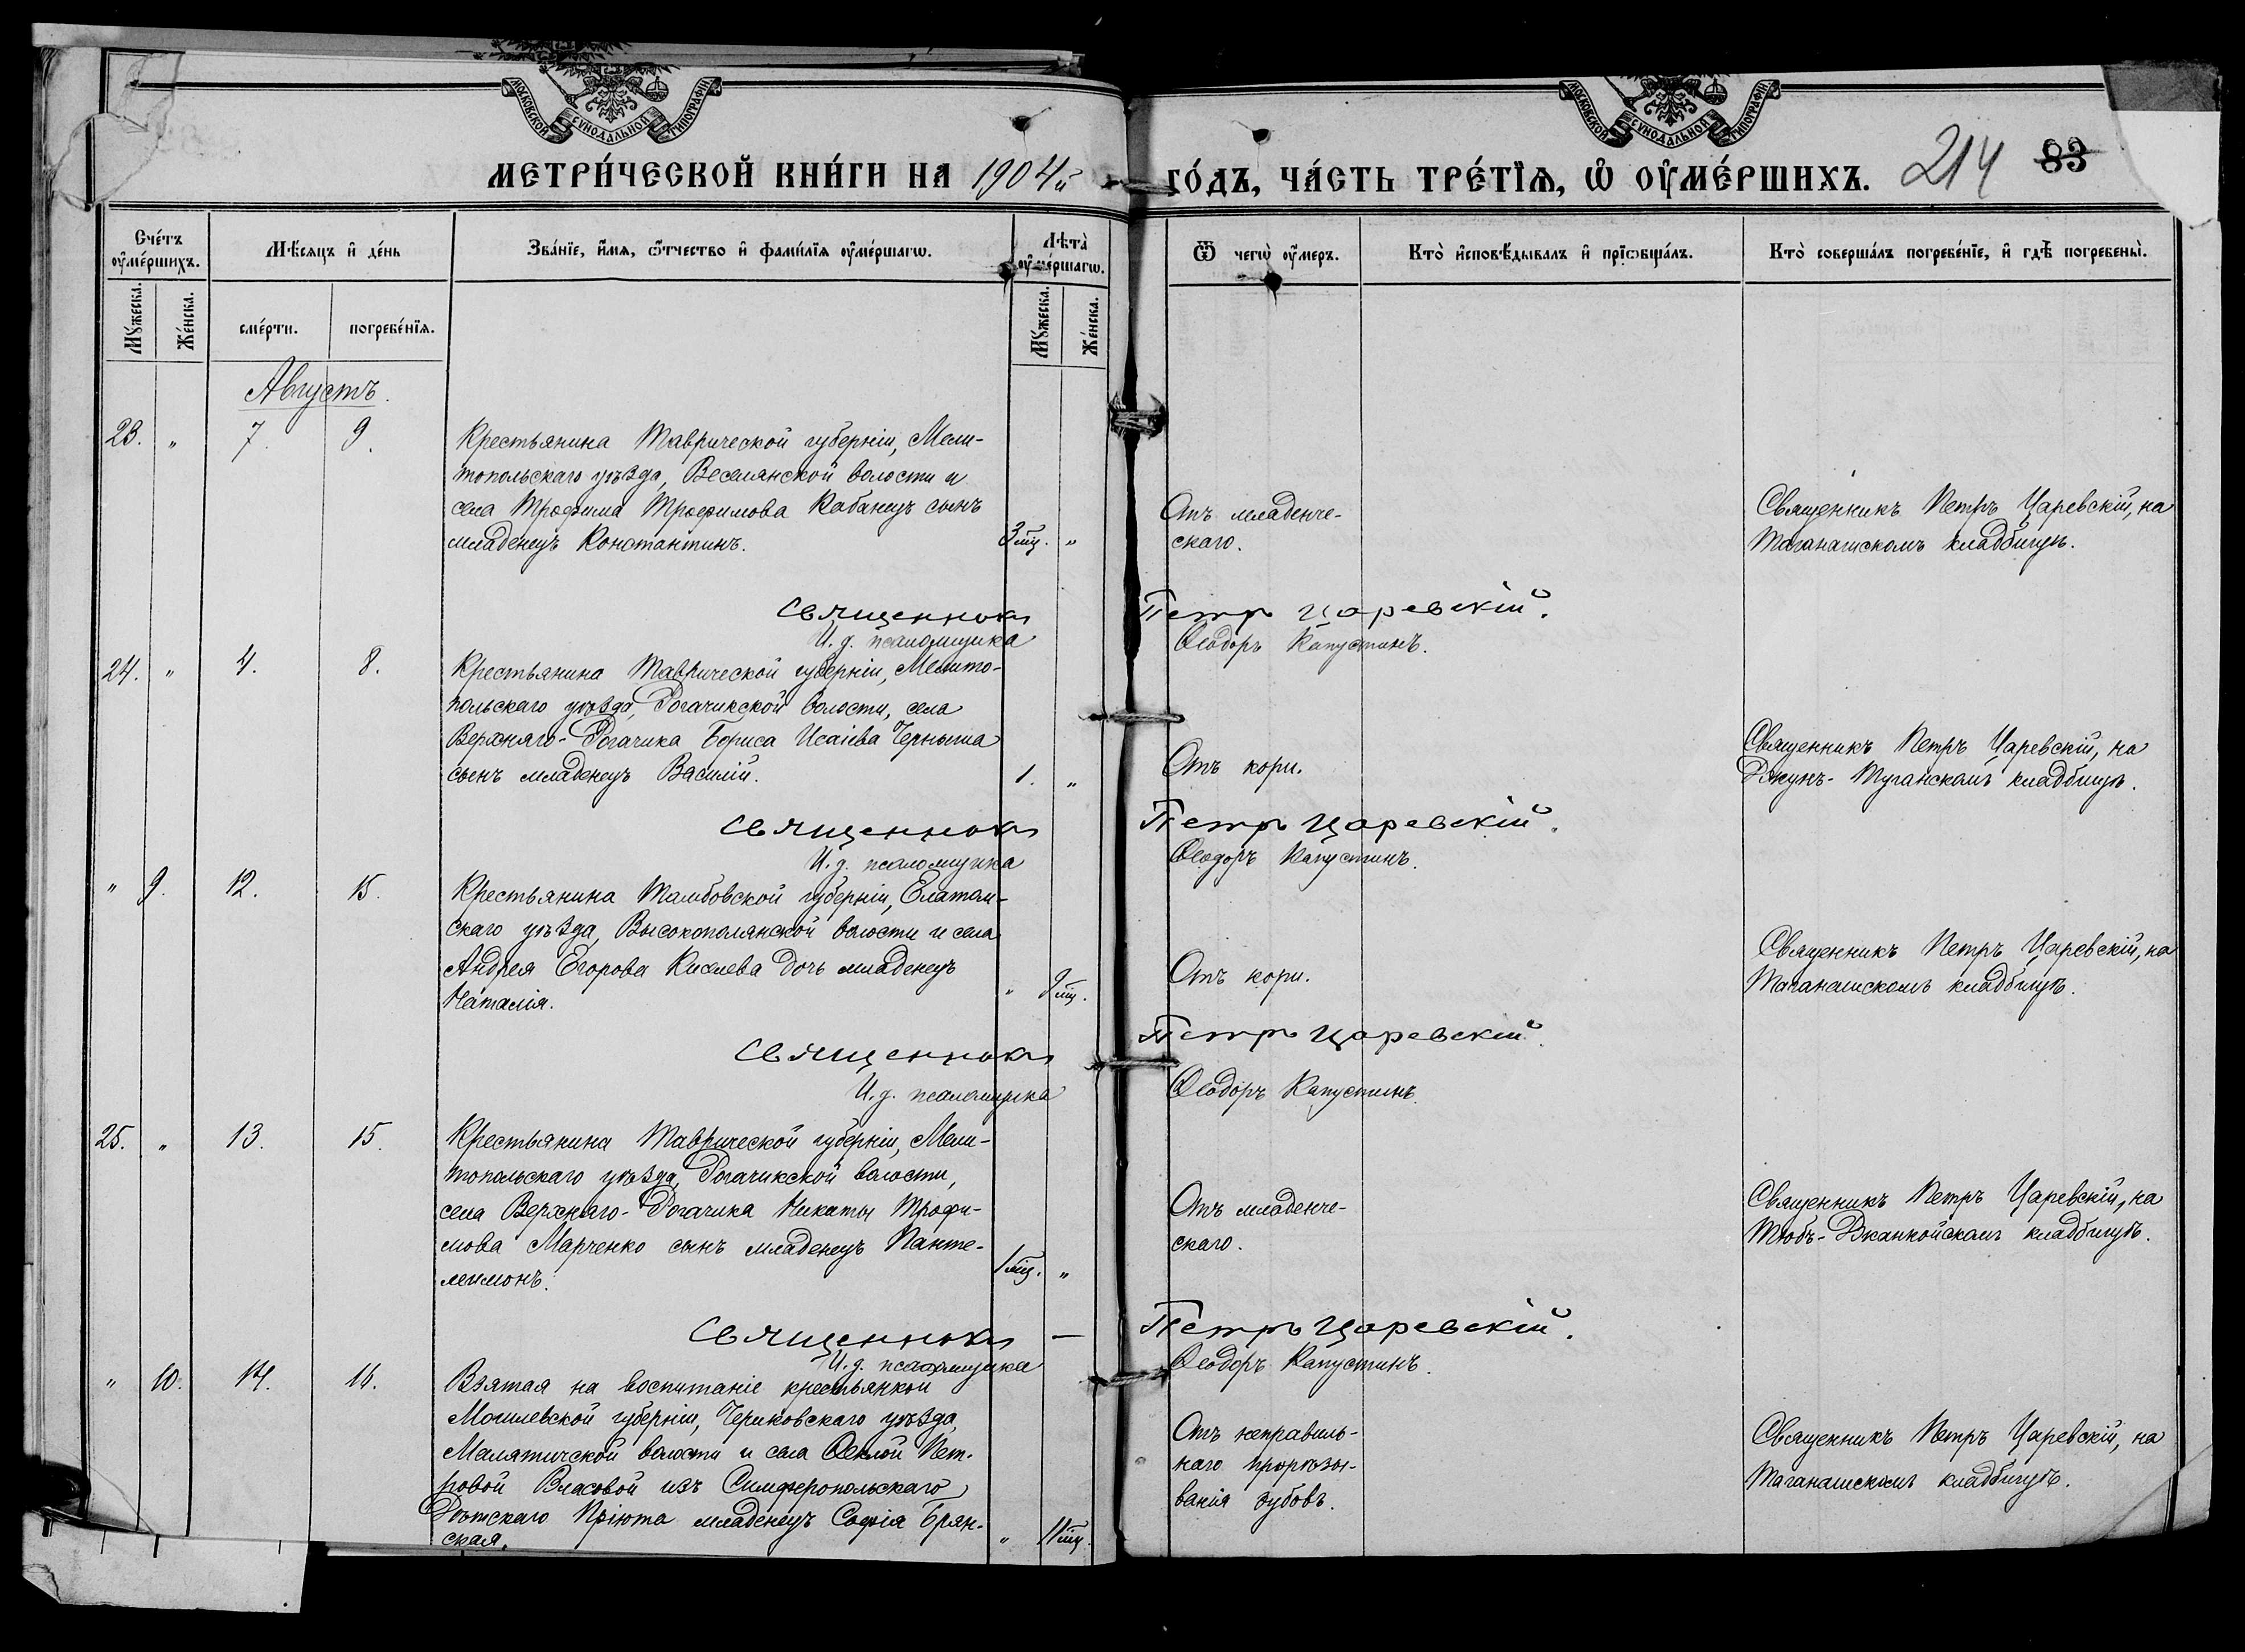 МОСКОВСКОЙ СѴНОДАЛЬНОЙ ТИПОГРАФІИ
МОСКОВСКОЙ СѴНОДАЛЬНОЙ ТИПОГРАФІИ
МЕТРИ́ЧЕСКОЙ КНИ́ГИ НА 1904й
ГО́ДЪ, ЧА́СТЬ ТРЕ́ТІѦ, Ѽ ОУ҆МЕ́РШИХЪ.
214 83
Сче́тъ оу҆ме́ршихъ.
Мꙋ́жеска.
Же́нска.
Мѣ́сяцъ и҆ де́нь
сме́рти.
погребе́нїѧ.
Зва́нїе, и҆́мѧ, ѻ҆́тчество и҆ фами́лїѧ оу҆ме́ршагѡ.
Лѣта̀ оу҆ме́ршагѡ.
Мꙋ́жеска.
Же́нска.
Ѿ чегѡ̀ оу҆́меръ.
Кто̀ и҆сповѣ́дывалъ и҆ прїѡбща́лъ.
Кто̀ соверша́лъ погребе́нїе, и҆ гдѣ̀ погребены̀.
Августъ.
23. „ 7. 9.
Крестьянина Таврической губерніи, Мели-
топольскаго уѣзда, Веселянской волости и
села Трофима Трофимова Кабанецъ сынъ
младенецъ Константинъ.
3 мц. „
Отъ младенче-
скаго.
Священникъ Петръ Царевскій, на
Таганашскомъ кладбищѣ.
Священникъ Петръ Царевскій.
И. д. псаломщика Ѳеодоръ Капустинъ.
24. „ 4. 8.
Крестьянина Таврической губерніи, Мелито-
польскаго уѣзда, Рогачикской волости, села
Верхняго-Рогачика Бориса Исаіева Черныша
сынъ младенецъ Василій.
1. „
Отъ кори.
Священникъ Петръ Царевскій, на
Джунъ-Туганскомъ кладбищѣ.
Священникъ Петръ Царевскій.
И. д. псаломщика Ѳеодоръ Капустинъ.
„ 9. 12. 15.
Крестьянина Тамбовской губерніи, Елатом-
скаго уѣзда, Высокополянской волости и села
Андрея Егорова Киселева дочь младенецъ
Наталія.
„ 9 мц.
Отъ кори.
Священникъ Петръ Царевскій, на
Таганашскомъ кладбищѣ.
Священникъ Петръ Царевскій.
И. д. псаломщика Ѳеодоръ Капустинъ.
25. „ 13. 15.
Крестьянина Таврической губерніи, Мели-
топольскаго уѣзда, Рогачикской волости,
села Верхняго-Рогачика Никиты Трофи-
мова Марченко сынъ младенецъ Панте-
леимонъ.
1 мц. „
Отъ младенче-
скаго.
Священникъ Петръ Царевскій, на
Тюбъ-Джанкойскомъ кладбищѣ.
Священникъ — Петръ Царевскій.
И. д. псаломщика Ѳеодоръ Капустинъ.
„ 10. 14. 16.
Взятая на воспитаніе крестьянкой
Могилевской губерніи, Чериковскаго уѣзда,
Малятичской волости и села Ѳеклой Пет-
ровой Власовой изъ Симферопольскаго
Дѣтскаго Пріюта младенецъ Софія Брян-
ская.
„ 11 мц.
Отъ неправиль-
наго прорѣзы-
ванія зубовъ.
Священникъ Петръ Царевскій, на
Таганашскомъ кладбищѣ.